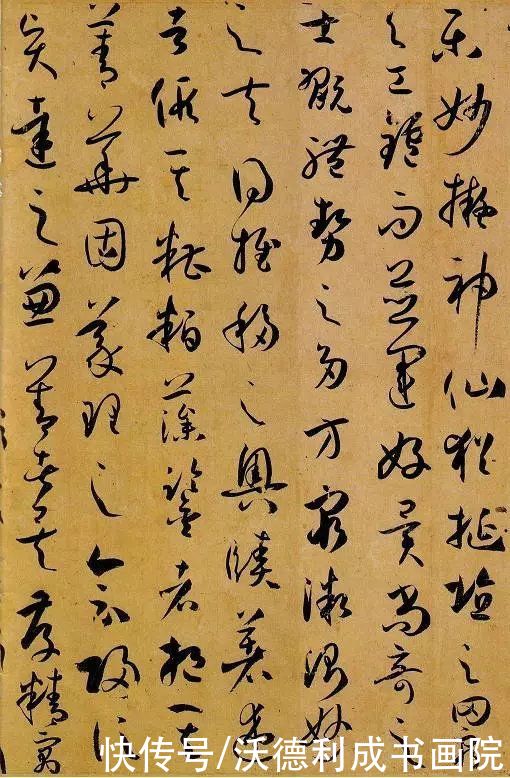 樂妙擬神仙猶埏埴之罔窮
與工鑪而並運好異尚奇之
士翫體勢之多方窮微測妙
之夫得推移之奧賾著述
者假其糟粕藻鑒者挹其
菁華固義理之會歸信
賢達之兼善者矣存精寓
快传号/沃德利成书画院